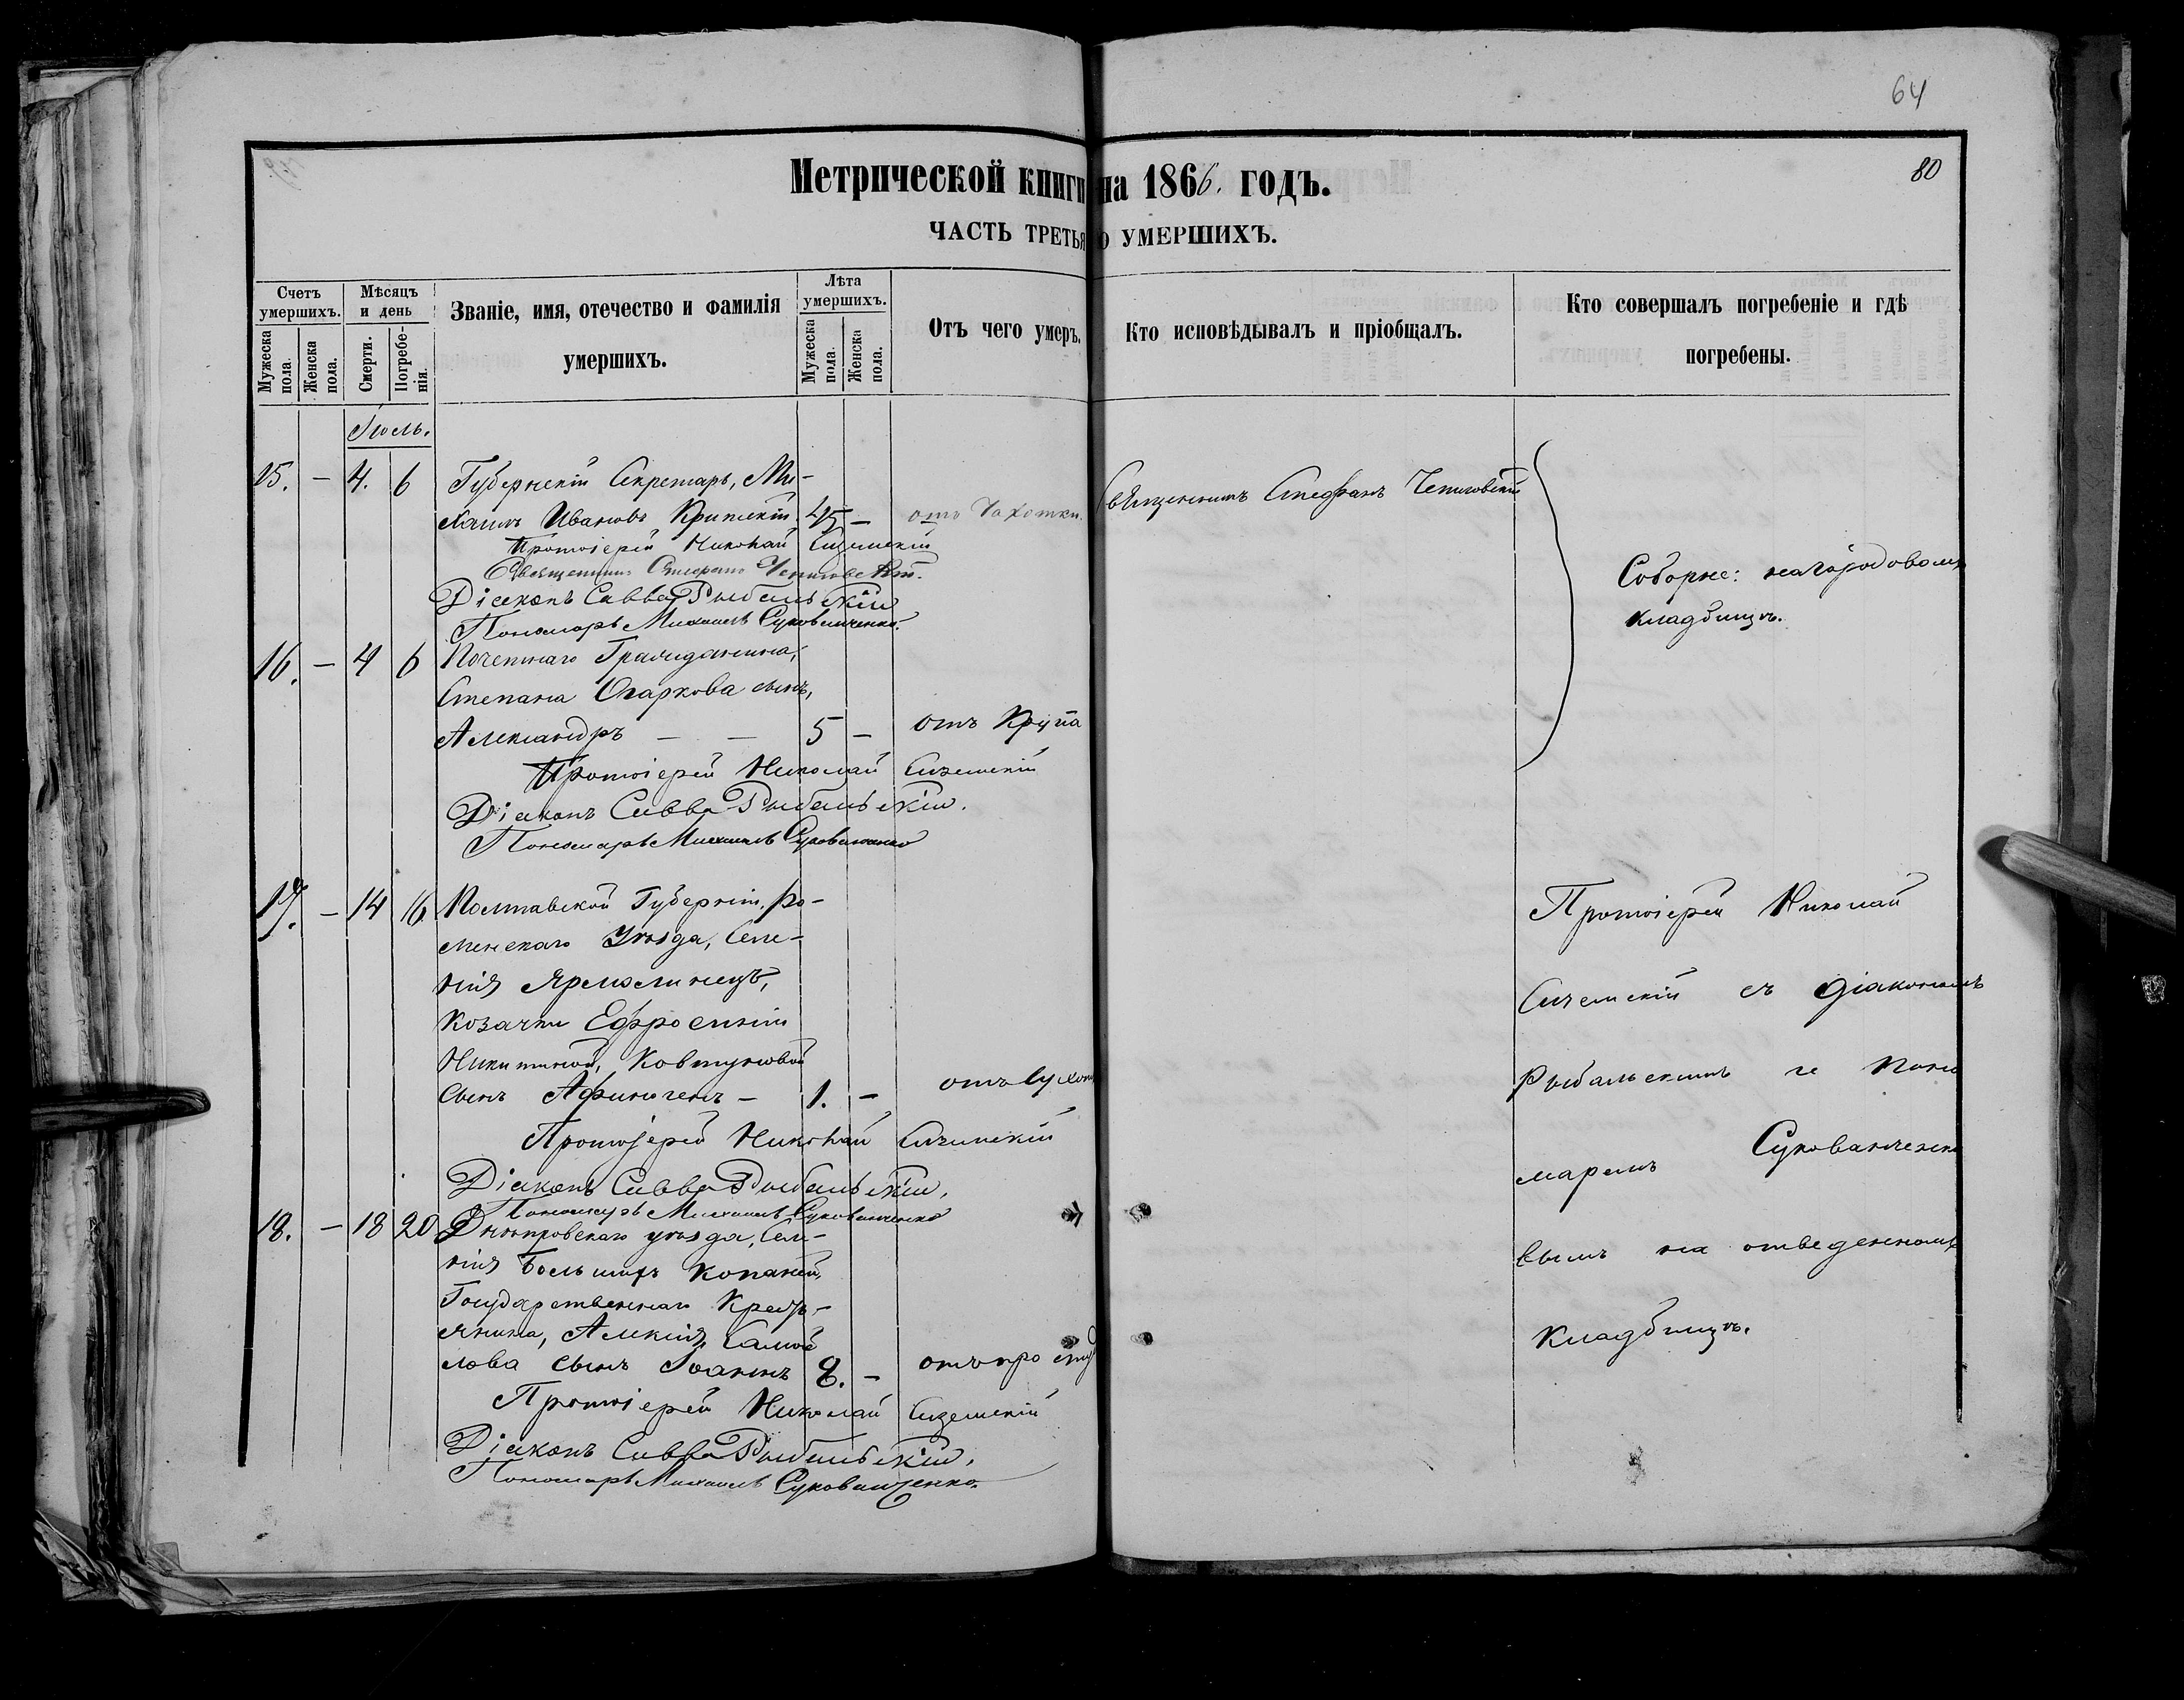 64
80
Метрической книги на 1866. годъ.
ЧАСТЬ ТРЕТЬЯ О УМЕРШИХЪ.
Счетъ умершихъ.
Мужеска пола.
Женска пола.
Мѣсяцъ и день
Смерти.
Погребенія.
Званіе, имя, отечество и фамилія
умершихъ.
Лѣта умершихъ.
Мужеска пола.
Женска пола.
Отъ чего умеръ.
Кто исповѣдывалъ и пріобщалъ.
Кто совершалъ погребеніе и гдѣ
погребены.
Іюль.
15. — 4. 6 Губернскій Секретарь, Ми-
хаилъ Ивановъ 45 — отъ Чахотки. Священникъ Стефанъ
Протоіерей Николай
Священникъ Стефанъ
Діаконъ Савва Рыбальскій
Пономарь Михаилъ Суковатченко.
Соборне: на городовомъ
кладбищѣ.
16. — 4 6 Почетнаго Гражданина,
Степана Огаркова сынъ,
Александръ — — 5 — отъ Крупа
Протоіерей Николай
Діаконъ Савва Рыбальскій.
Пономарь Михаилъ Суковатченко
17. — 14 16 Полтавской Губерніи, Ро-
менскаго Уѣзда, Селе-
нія Ярмолинецъ,
Козачки Ефросиніи
Никитиной, Ковтуновой
Сынъ Афиногенъ — 1. — отъ Сухот
Протоіерей Николай
Діаконъ Савва Рыбальскій,
Пономарь Михаилъ Суковатченко
Протоіерей Николай
съ діакономъ
Рыбальскимъ и поно
маремъ Суковатченко
вымъ на отведенномъ
кладбищѣ.
18. — 18 20 Днѣпровскаго уѣзда, Селе-
нія Большихъ Копаней,
Государственнаго Кресть-
янина, Алексія Самой
лова сынъ Іоаннъ 8. — отъ простуд
Протоіерей Николай
Діаконъ Савва Рыбальскій,
Пономарь Михаилъ Суковатченко.